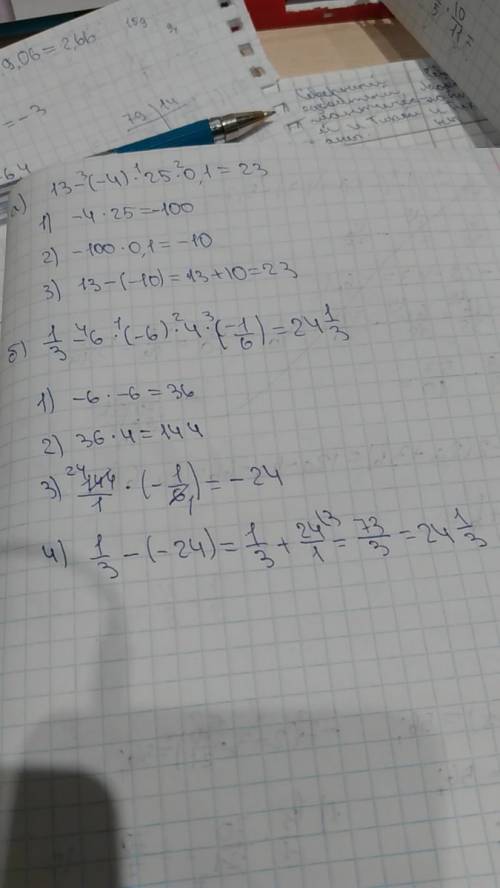 9,06=2,66
= -3
79 14
-64
10
13
а) 13-³(-4)·¹25·²0,1=23
1) -4·25=-100
2) -100·0,1=-10
3) 13-(-10)=13+10=23
б) 1/3 -⁴6·¹(-6)·²4·³(-1/6)=24 1/3
1) -6·-6=36
2) 36·4=144
3) ²⁴144/1·(-1/6₁)=-24
4) 1/3-(-24)=1/3+24\3/1=73/3=24 1/3